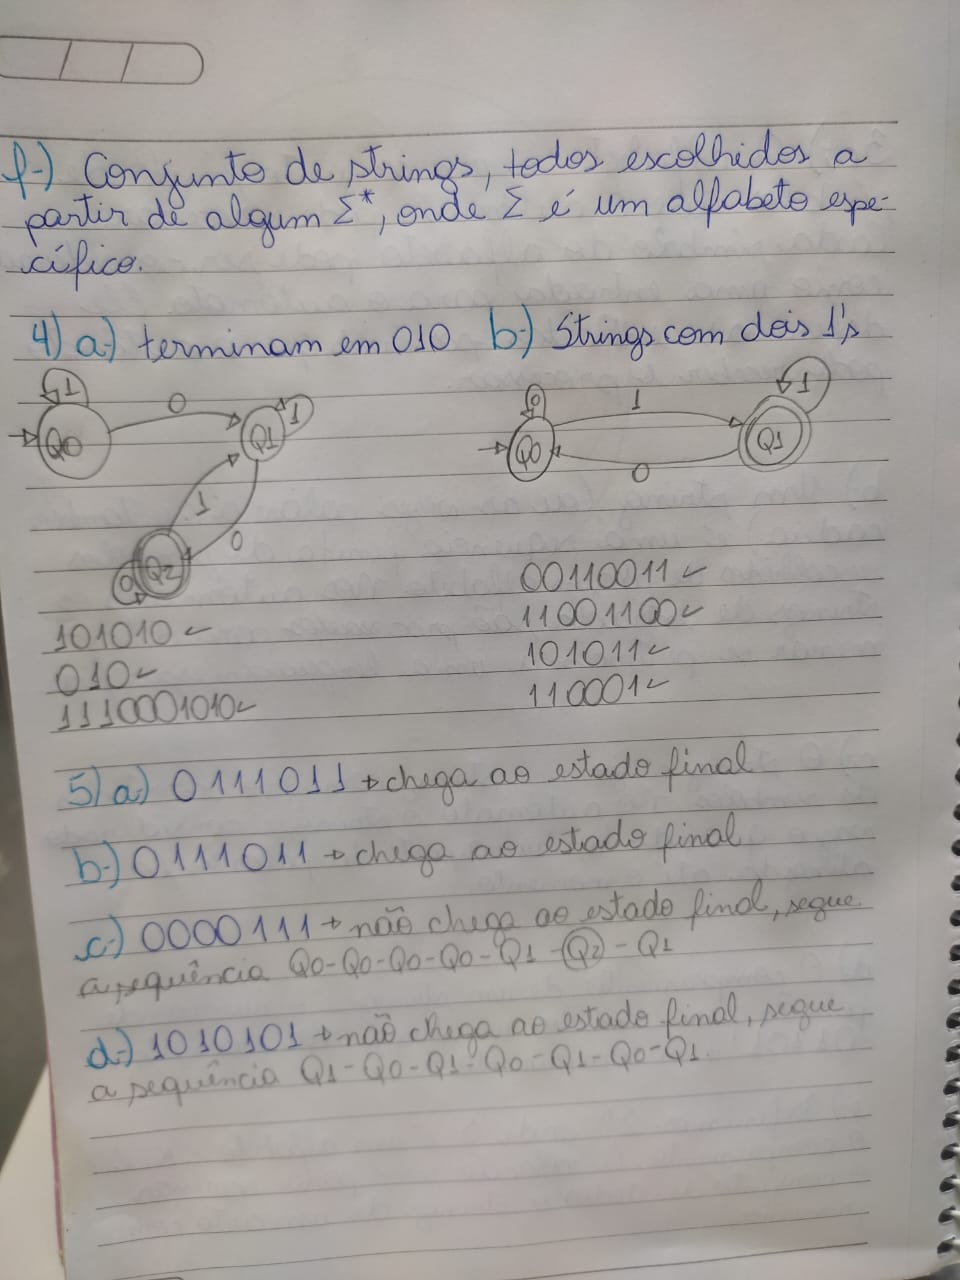 f-) Conjunto de strings, todos escolhidos a
partir de algum Σ*, onde Σ é um alfabeto espe-
cífico.
4) a-) terminam em 010 b-) Strings com dois 1's
1
0
1
Q0
Q1
1
0
Q2
0
0
1
1
Q0
Q1
0
101010 ✓
010 ✓
1110001010 ✓
00110011 ✓
11001100 ✓
101011 ✓
110001 ✓
5) a-) 0111011 → chega ao estado final
b-) 0111011 → chega ao estado final
c-) 0000111 → não chega ao estado final, segue
a sequência Q0-Q0-Q0-Q0-Q1-Q2-Q1
d-) 1010101 → não chega ao estado final, segue
a sequência Q1-Q0-Q1-Q0-Q1-Q0-Q1.